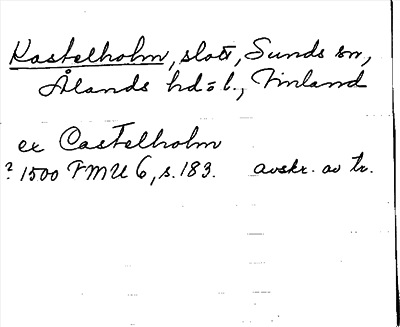 Kastelholm, slott, Sunds sn,
Ålands hd o l., Finland
ex Castelholm
? 1500 FMU 6, s. 183. avskr. av tr.